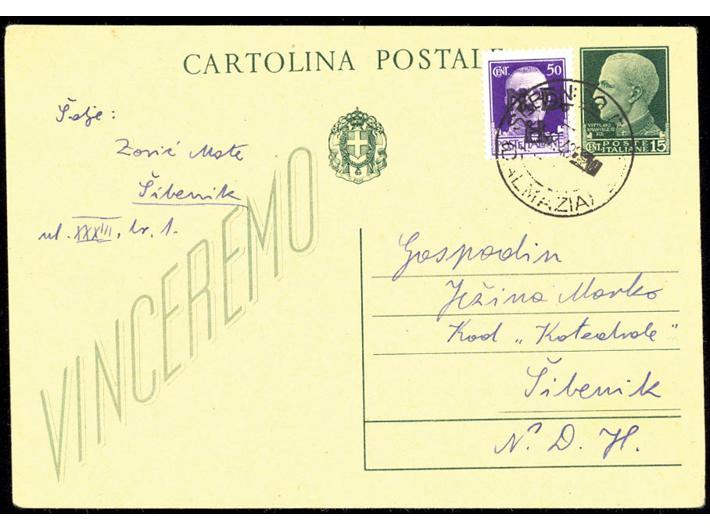 CARTOLINA POSTALE
CENT. 50
N. D.
H.
VITTORIO EMANUELE III
POSTE
CENT. ITALIANE 15
DALMAZIA
Šalje:
Zorić Mate
Šibenik
ul. XXXIII, br. 1.
VINCEREMO
Gospodin
Ježina Marko
Kod „Katedrale"
Šibenik
N. D. H.